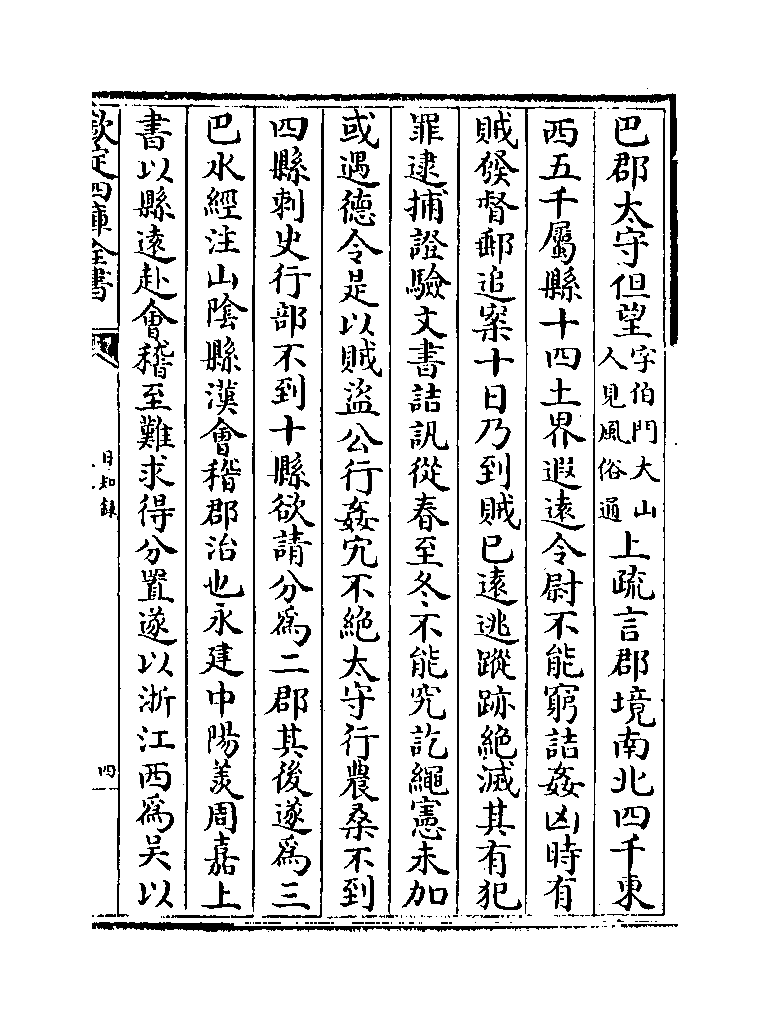 巴郡太守但望字伯門大山人見風俗通上疏言郡境南北四千東
西五千屬縣十四土界遐遠令尉不能窮詰姦凶時有
賊發督郵追案十日乃到賊已遠逃蹤跡絶滅其有犯
罪逮捕證驗文書詰訊從春至冬不能究訖繩憲未加
或遇德令是以賊盜公行姦宄不絶太守行農桑不到
四縣刺史行部不到十縣欲請分為二郡其後遂為三
巴水經注山陰縣漢會稽郡治也永建中陽羡周嘉上
書以縣遠赴會稽至難求得分置遂以浙江西為吳以
欽定四庫全書
日知録
四